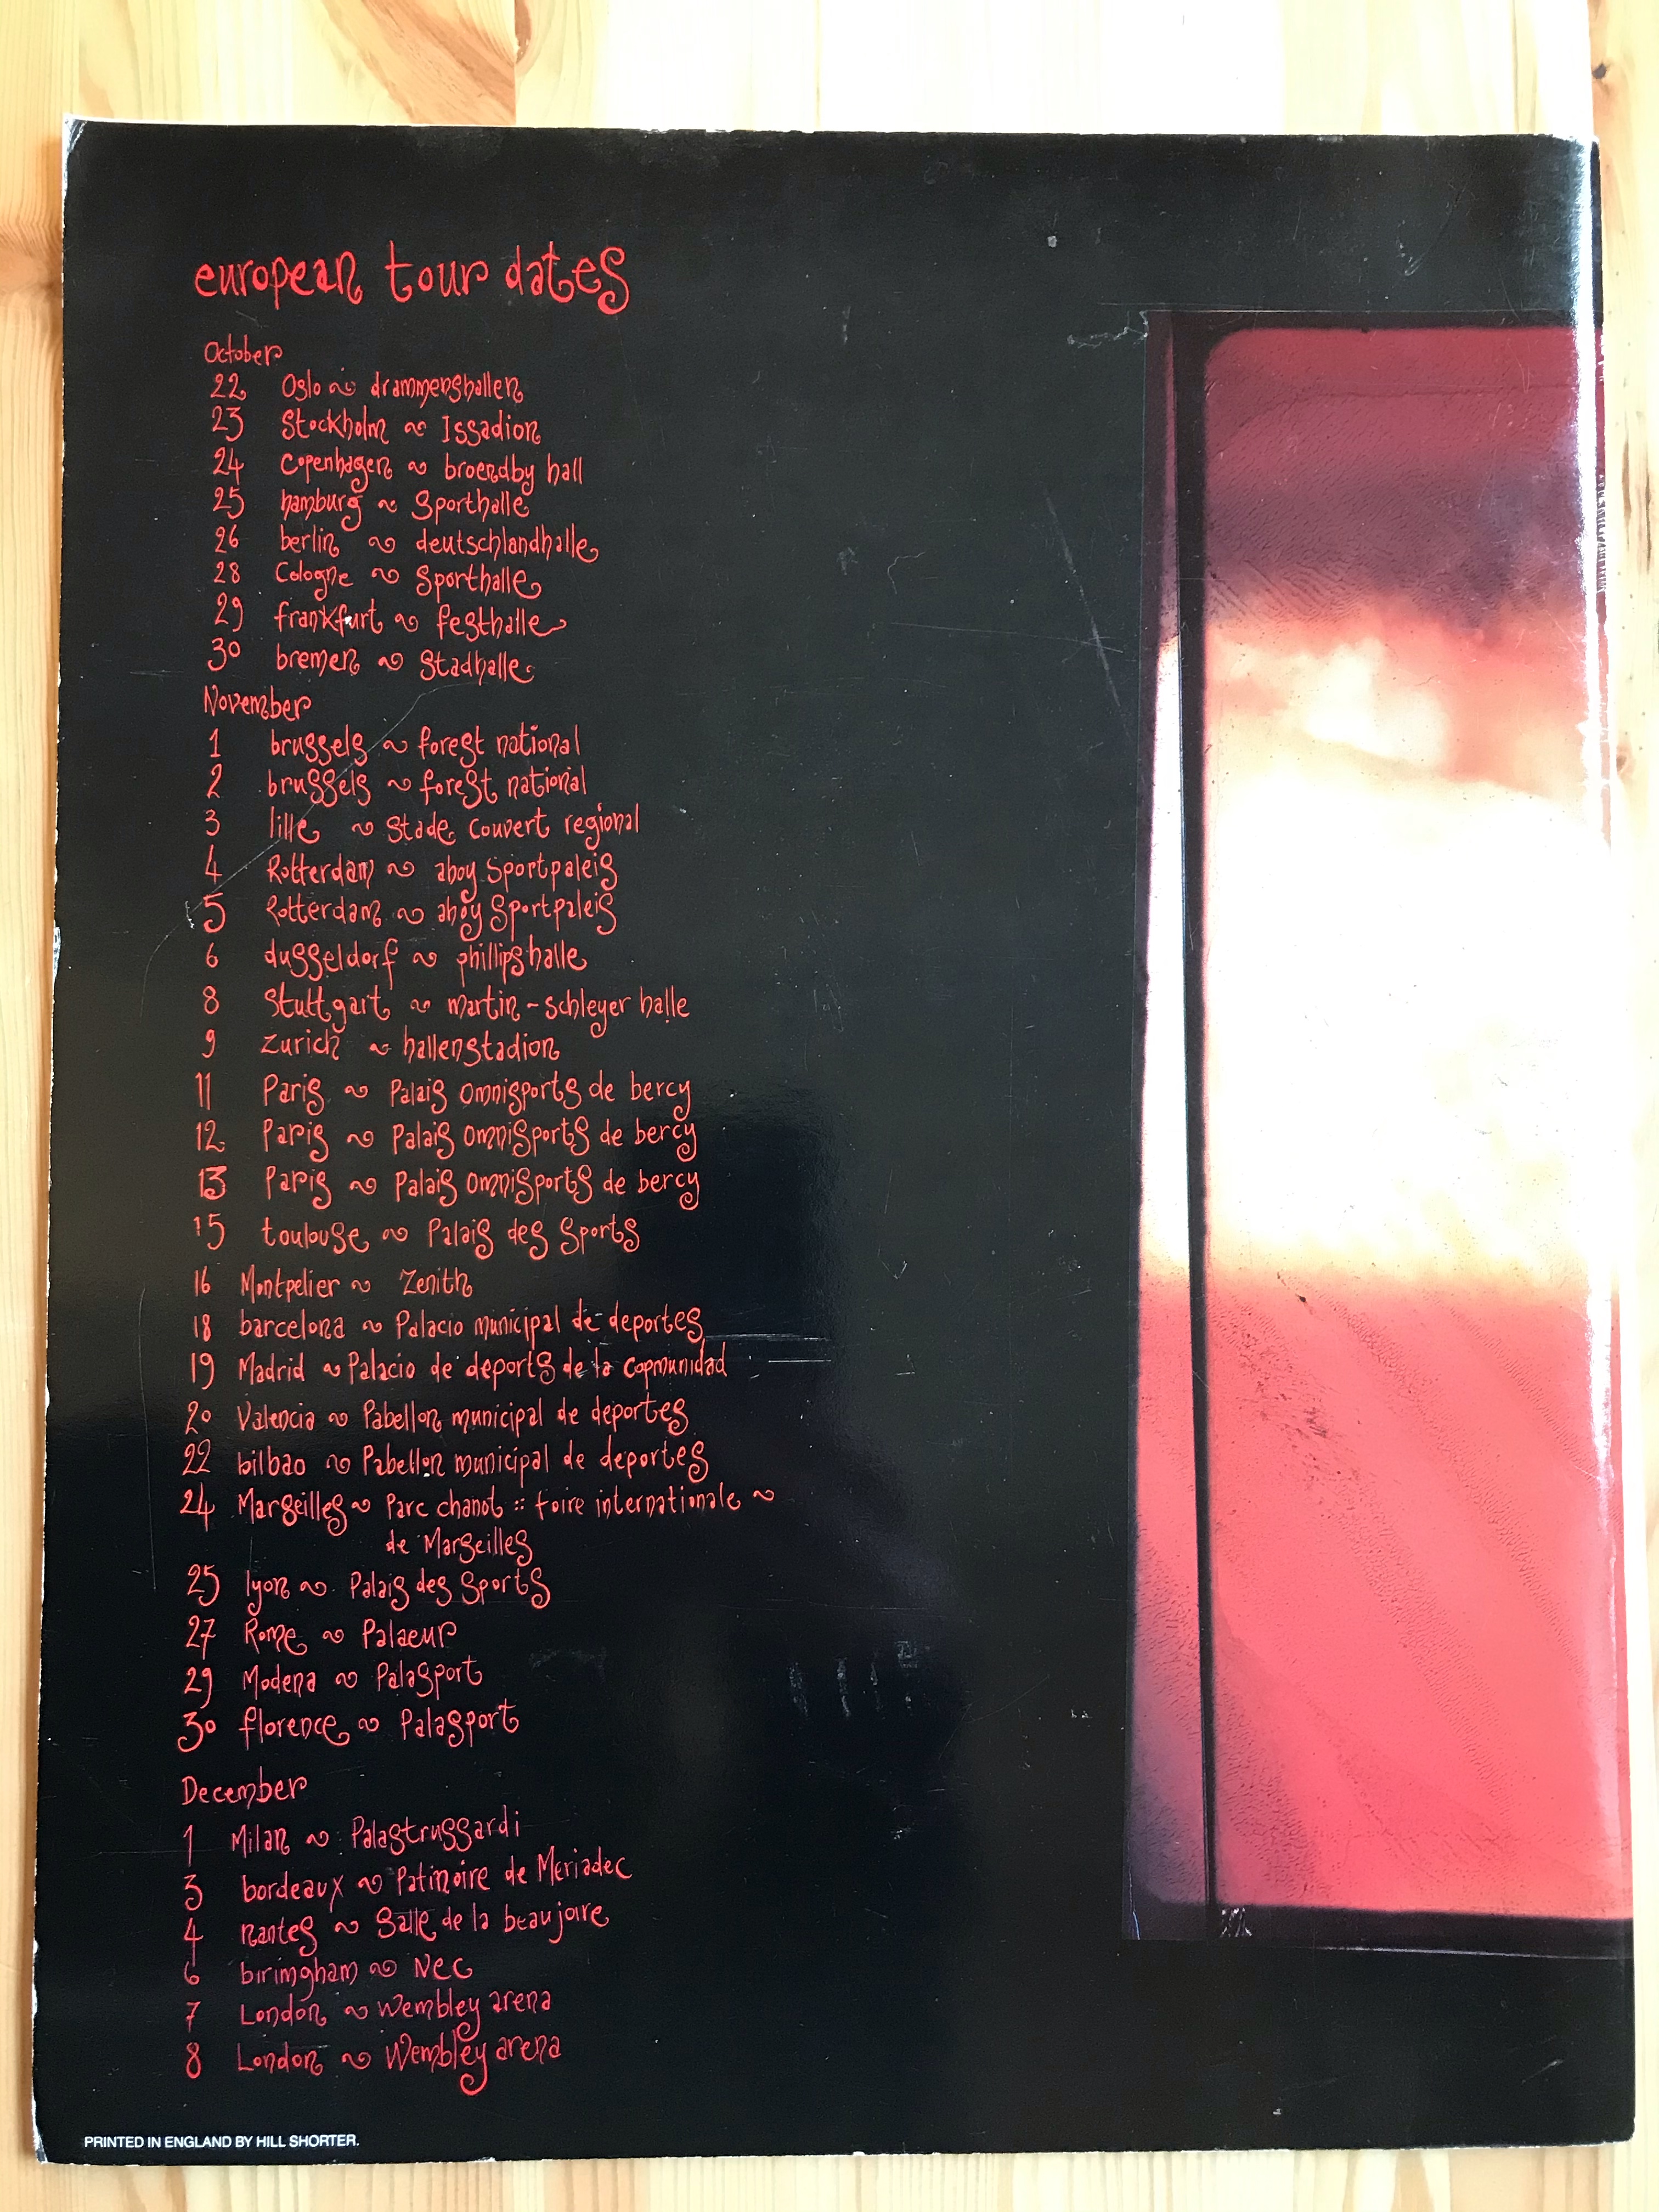 european tour dates
October
22 Oslo ~ drammenshallen
23 Stockholm ~ Issadion
24 Copenhagen ~ broendby hall
25 hamburg ~ Sporthalle
26 berlin ~ deutschlandhalle
28 Cologne ~ Sporthalle
29 frankfurt ~ festhalle
30 bremen ~ Stadhalle
November
1 brussels ~ forest national
2 brussels ~ forest national
3 lille ~ Stade Couvert regional
4 Rotterdam ~ ahoy Sportpaleis
5 Rotterdam ~ ahoy Sportpaleis
6 dusseldorf ~ phillipshalle
8 Stuttgart ~ martin-schleyer halle
9 Zurich ~ hallenstadion
11 Paris ~ Palais Omnisports de bercy
12 Paris ~ Palais Omnisports de bercy
13 Paris ~ Palais Omnisports de bercy
15 toulouse ~ Palais des Sports
16 Montpelier ~ Zenith
18 barcelona ~ Palacio municipal de deportes
19 Madrid ~ Palacio de deports de la copmunidad
20 Valencia ~ Pabellon municipal de deportes
22 bilbao ~ Pabellon municipal de deportes
24 Marseilles ~ Parc chanot :: foire internationale ~
de Marseilles
25 lyon ~ Palais des Sports
27 Rome ~ Palaeur
29 Modena ~ Palasport
30 florence ~ Palasport
December
1 Milan ~ Palastrussardi
3 bordeaux ~ Patinoire de Meriadec
4 nantes ~ Salle de la beaujoire
6 birimgham ~ Nec
7 London ~ Wembley arena
8 London ~ Wembley arena
PRINTED IN ENGLAND BY HILL SHORTER.